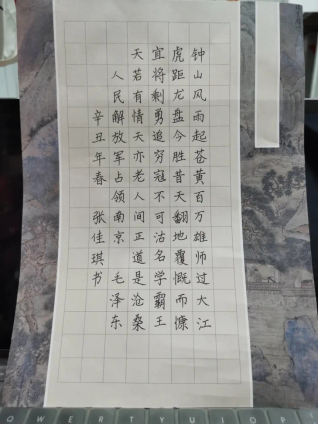 钟山风雨起苍黄百万雄师过大江
虎距龙盘今胜昔天翻地覆慨而慷
宜将剩勇追穷寇不可沽名学霸王
天若有情天亦老人间正道是沧桑
人民解放军占领南京 毛泽东
辛丑年春 张佳琪书
Q W E R T Y U I O P